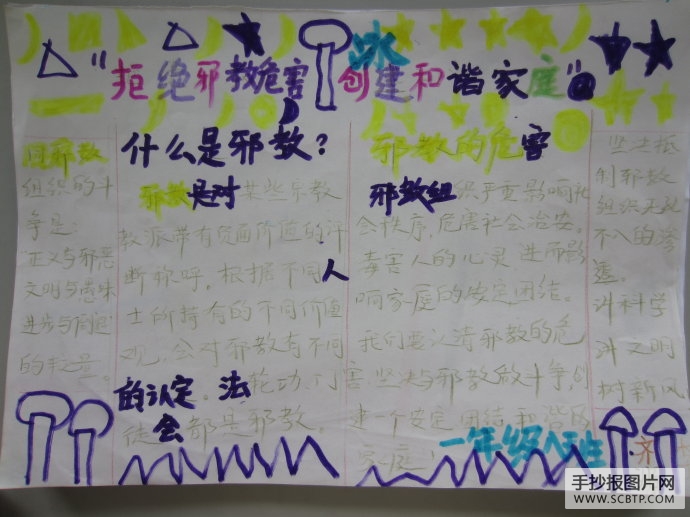 "拒绝邪教危害 创建和谐家庭"
同邪教
组织的斗
争是
正义与邪恶
文明与愚昧
进步与
的较量。
什么是邪教?
邪教是对某些宗教
教派带有负面价值的评
断称呼。根据不同人
士所持有的不同价值
观,会对邪教有不同
的认定。法轮功、门
徒会都是邪教。
邪教的危害
邪教组织严重影响社
会秩序,危害社会治安。
毒害人的心灵进而影
响家庭的安定团结。
我们要认清邪教的危
害坚决与邪教做斗争,创
建一个安定团结和谐的
家庭!
坚决抵
制邪教
组织无孔
不入的渗
透。
讲科学
讲文明
树新风
一年级
手抄报图片网
WWW.SCBTP.COM